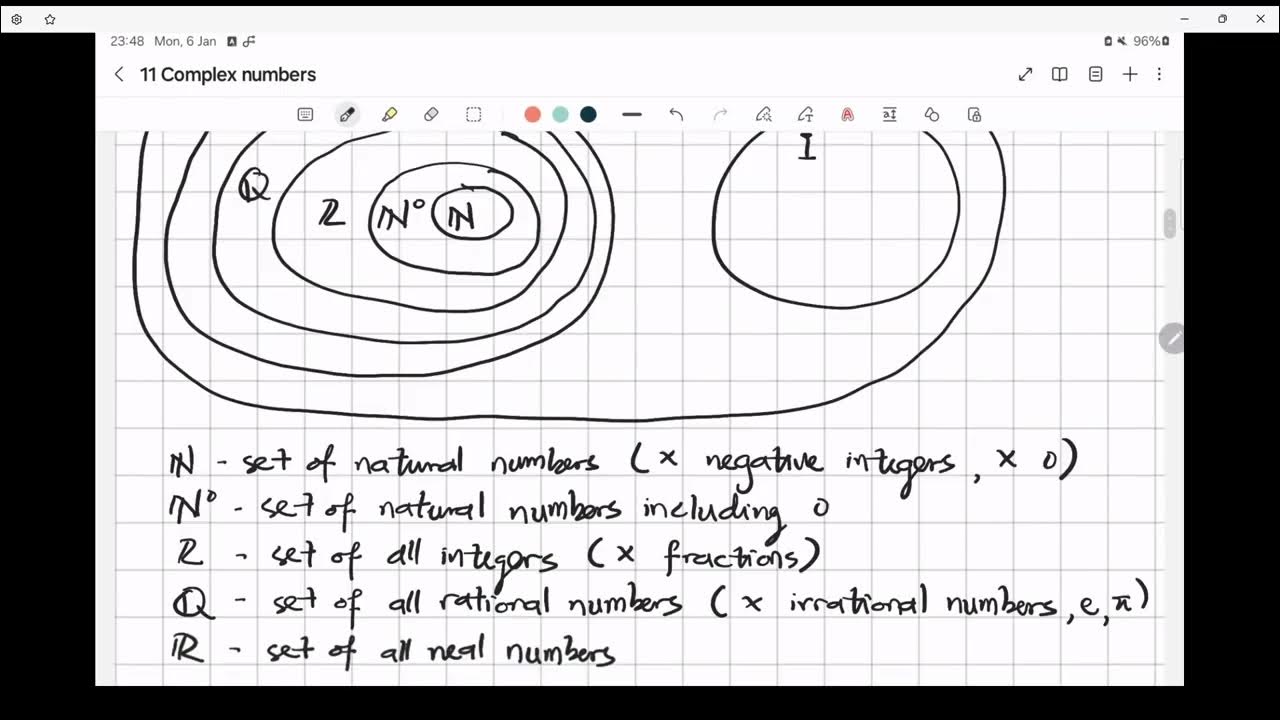 23:48 Mon, 6 Jan 96%
11 Complex numbers
I
ℚ
ℤ ℕ⁰ ℕ
ℕ - set of natural numbers (x negative integers, x 0)
ℕ⁰ - set of natural numbers including 0
ℤ - set of all integers (x fractions)
ℚ - set of all rational numbers (x irrational numbers, e, π)
ℝ - set of all real numbers